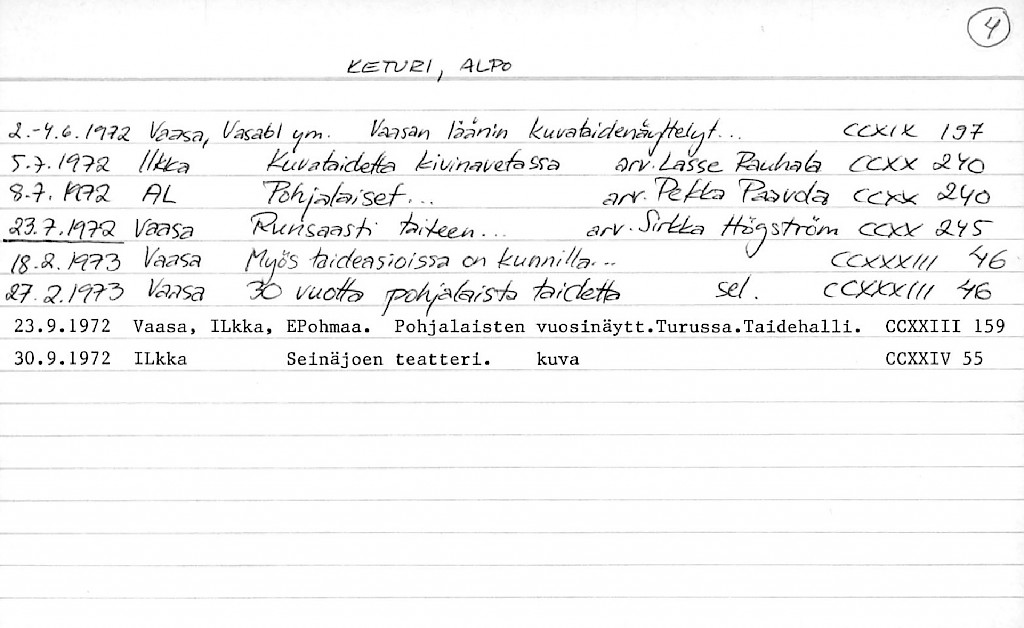 4
KETURI, ALPO
2.-4.6.1972 Vaasa, Vasabl ym. Vaasan läänin kuvataidenäyttelyt... CCXIX 197
5.7.1972 Ilkka Kuvataidetta kivinavetassa arv. Lasse Rauhala CCXX 240
8.7.1972 AL Pohjalaiset... arv. Pekka Paavola CCXX 240
23.7.1972 Vaasa Runsaasti taiteen... arv. Sirkka Högström CCXX 245
18.2.1973 Vaasa Myös taideasioissa on kunnilla... CCXXXIII 46
27.2.1973 Vaasa 30 vuotta pohjalaista taidetta sel. CCXXXIII 46
23.9.1972 Vaasa, ILkka, EPohmaa. Pohjalaisten vuosinäytt.Turussa.Taidehalli. CCXXIII 159
30.9.1972 ILkka Seinäjoen teatteri. kuva CCXXIV 55